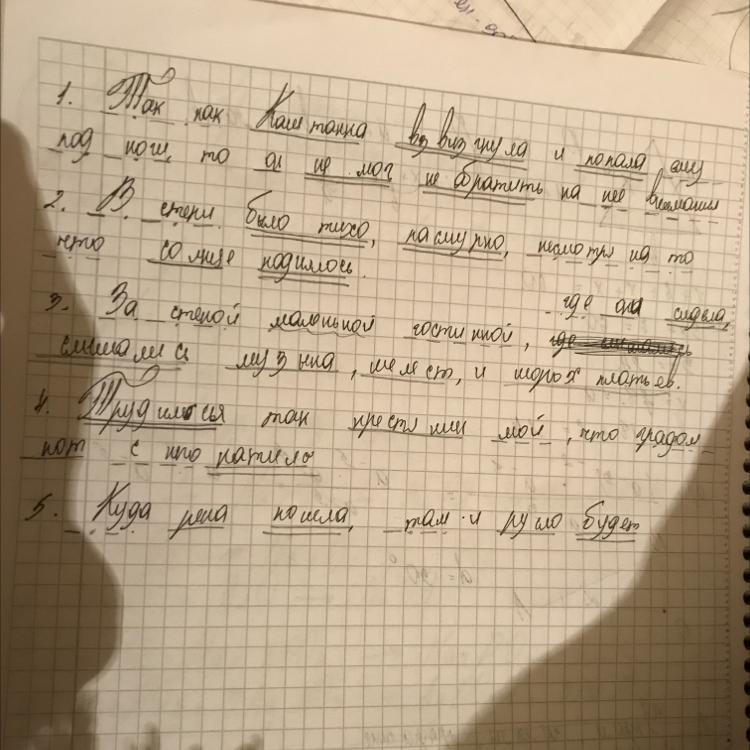 1. Так как Каштанка взвизгнула и попала ему
под ноги, то он не мог не обратить на неё внимания
2. В степи было тихо, пасмурно, несмотря на то
что солнце поднялось.
3. За стеной маленькой гостинной, где она сидела,
слышались музыка, шелест, и шорох платьев.
4. Трудился так крестьянин мой, что градом
пот с него катился
5. Куда река пошла, там и русло будет
d = 90°